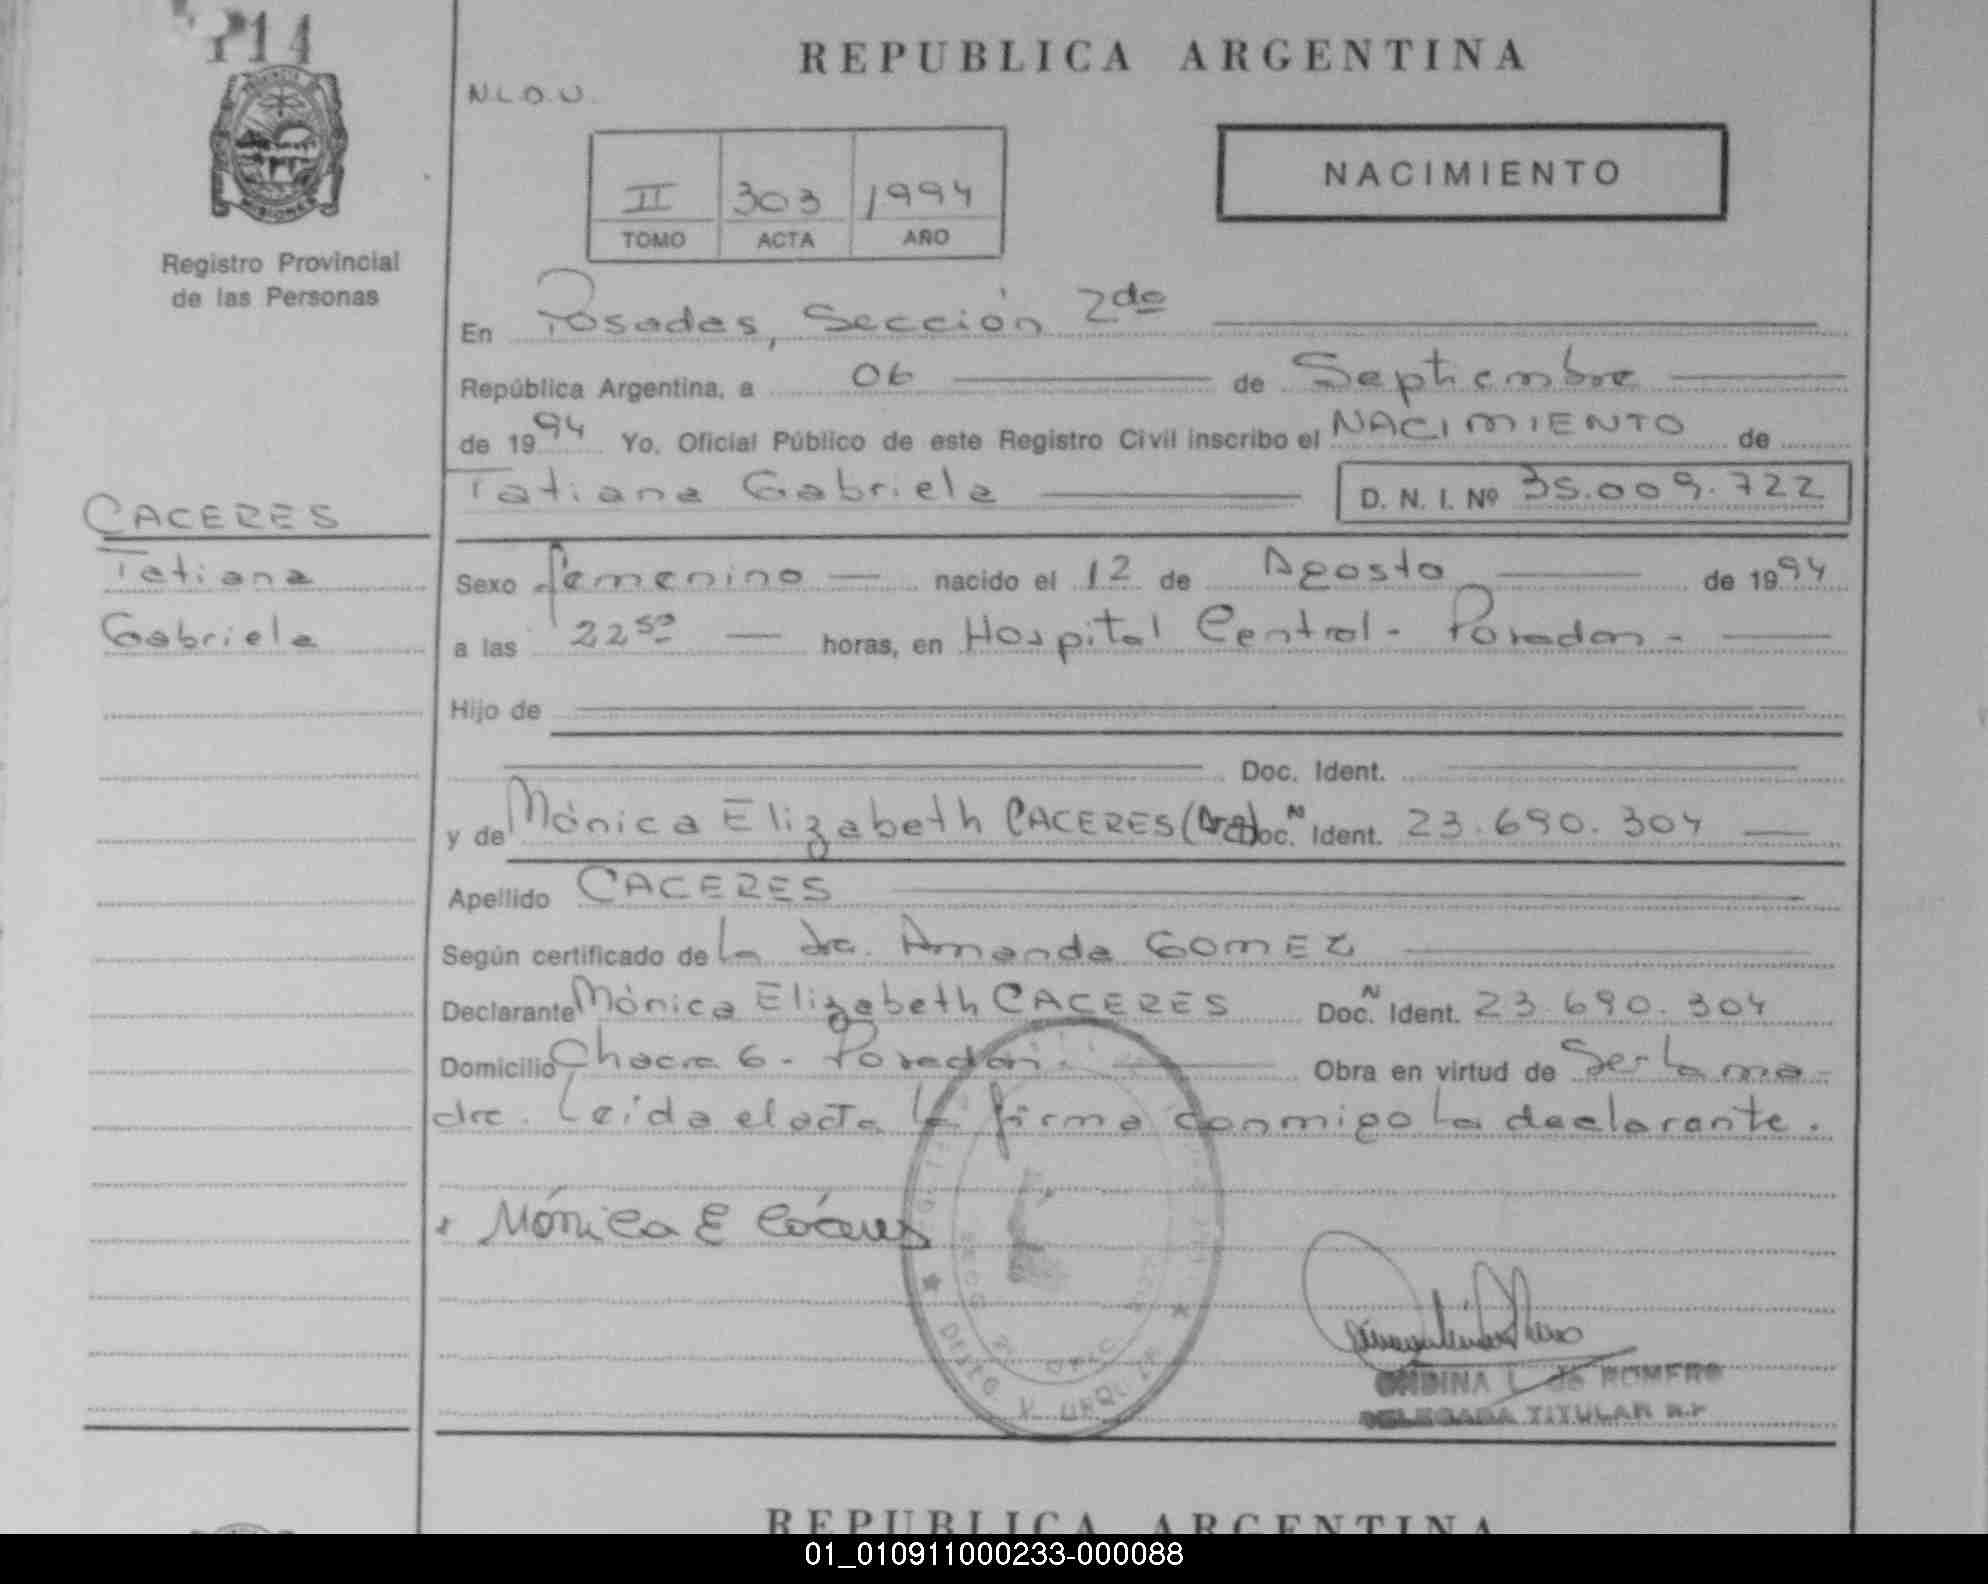 214
REPUBLICA ARGENTINA
N.L.O.U.
NACIMIENTO
II 303 1994
TOMO ACTA AÑO
MISIONES
Registro Provincial
de las Personas
En Posadas, Sección 2da
República Argentina, a 06 de Septiembre
de 1994 Yo. Oficial Público de este Registro Civil inscribo el NACIMIENTO de
Tatiana Gabriela D. N. I. Nº 35.009.722
CACERES
Tatiana
Gabriela
Sexo femenino nacido el 12 de Agosto de 1994
a las 22 50 horas, en Hospital Central - Posadas -
Hijo de
Doc. Ident.
y de Mónica Elizabeth CACERES (Arg) Doc. N Ident. 23.690.304
Apellido CACERES
Según certificado de la dra. Amanda GOMEZ
Declarante Mónica Elizabeth CACERES Doc. N Ident. 23.690.304
Domicilio Chacra 6 - Posadas. Obra en virtud de Ser la ma-
dre. Leída el acta la firma conmigo la declarante.
Mónica E Cáceres
ONDINA L. de ROMERO
DELEGADA TITULAR R.P
REPUBLICA ARGENTINA
01_010911000233-000088